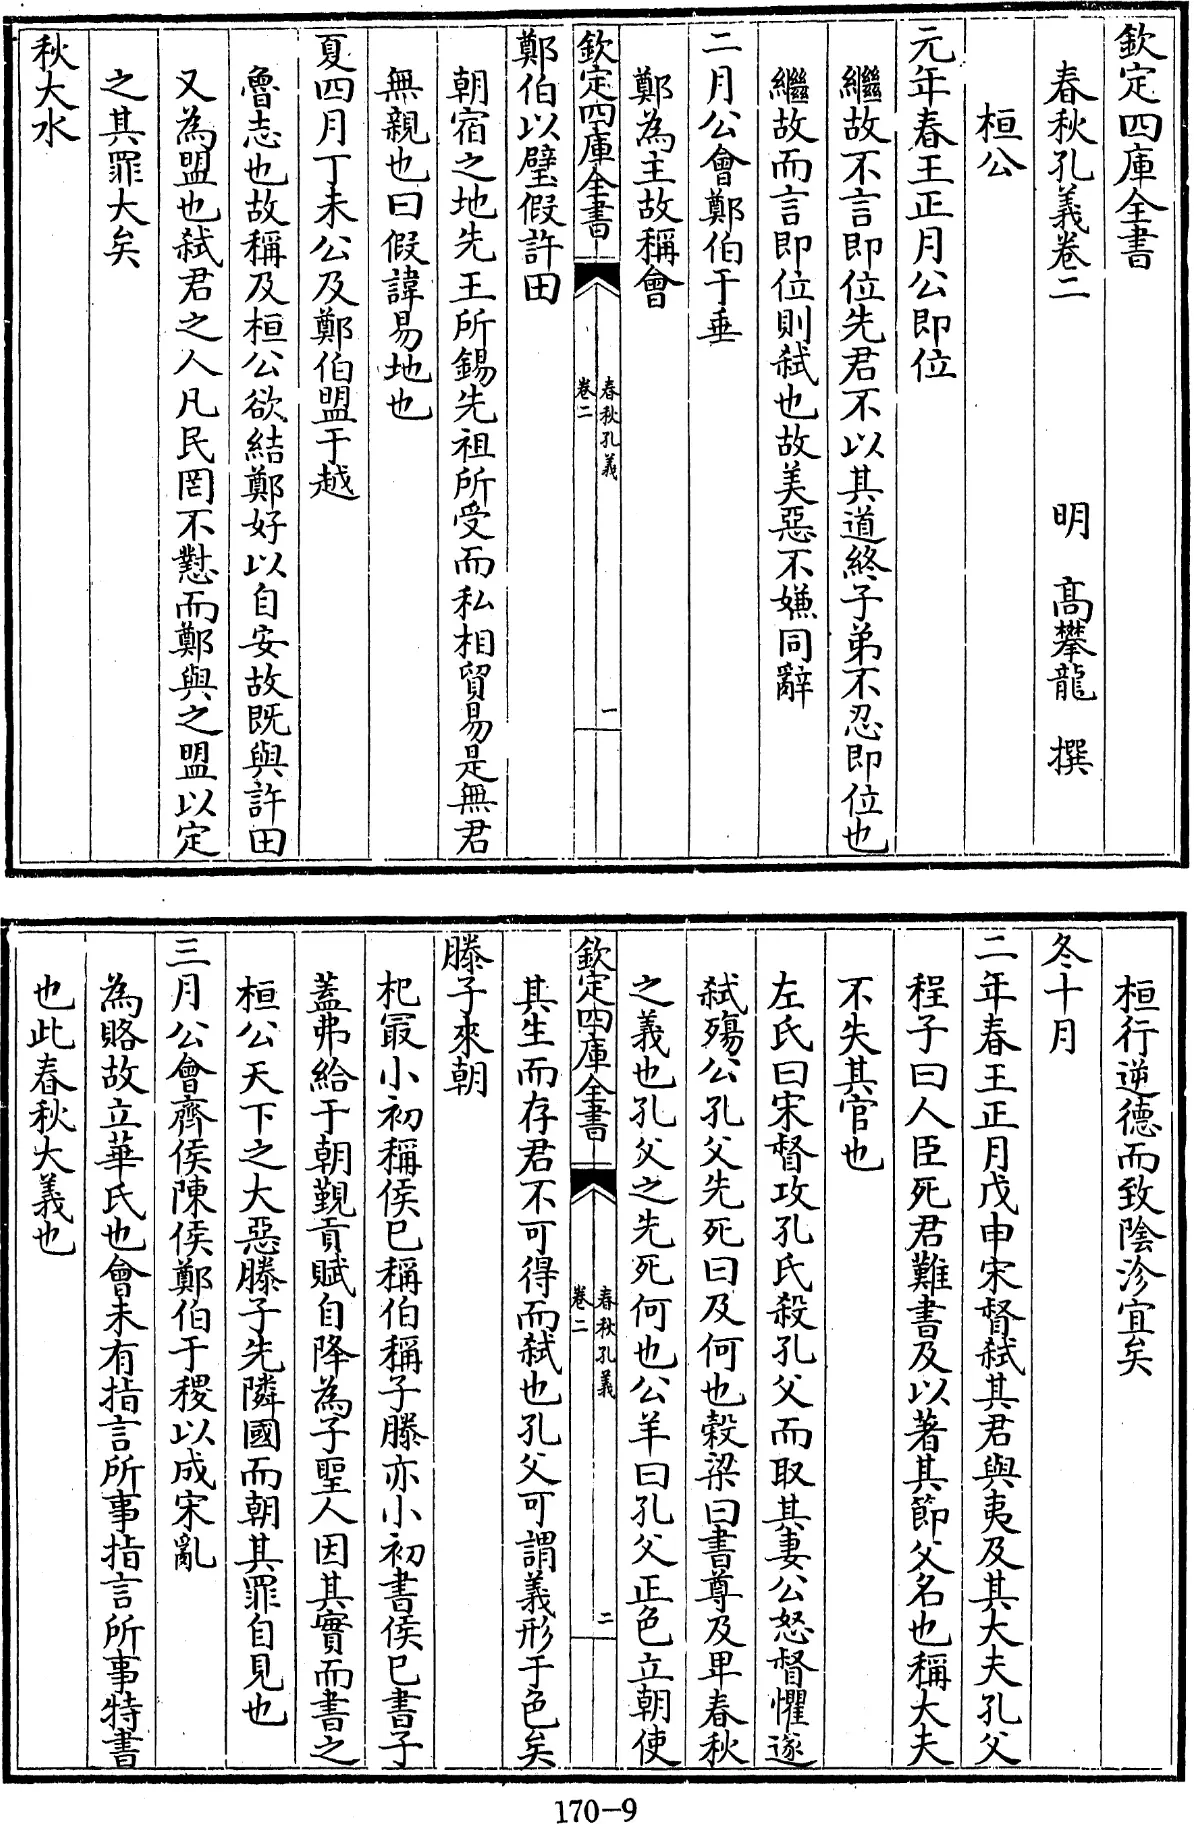 欽定四庫全書
春秋孔義卷二
明 高攀龍 撰
桓公
元年春王正月公即位
繼故不言即位先君不以其道終子弟不忍即位也
繼故而言即位則弑也故美惡不嫌同辭
二月公會鄭伯于垂
鄭為主故稱會
欽定四庫全書
春秋孔義
卷二
一
鄭伯以璧假許田
朝宿之地先王所錫先祖所受而私相貿易是無君
無親也曰假諱易地也
夏四月丁未公及鄭伯盟于越
魯志也故稱及桓公欲結鄭好以自安故既與許田
又為盟也弑君之人凡民罔不憝而鄭與之盟以定
之其罪大矣
秋大水
桓行逆德而致陰沴宜矣
冬十月
二年春王正月戊申宋督弑其君與夷及其大夫孔父
程子曰人臣死君難書及以著其節父名也稱大夫
不失其官也
左氏曰宋督攻孔氏殺孔父而取其妻公怒督懼遂
弑殤公孔父先死曰及何也穀梁曰書尊及卑春秋
之義也孔父之先死何也公羊曰孔父正色立朝使
欽定四庫全書
春秋孔義
卷二
二
其生而存君不可得而弑也孔父可謂義形于色矣
滕子來朝
杞最小初稱侯已稱伯稱子滕亦小初書侯已書子
蓋弗給于朝覲貢賦自降為子聖人因其實而書之
桓公天下之大惡滕子先隣國而朝其罪自見也
三月公會齊侯陳侯鄭伯于稷以成宋亂
為賂故立華氏也會未有指言所事指言所事特書
也此春秋大義也
170-9